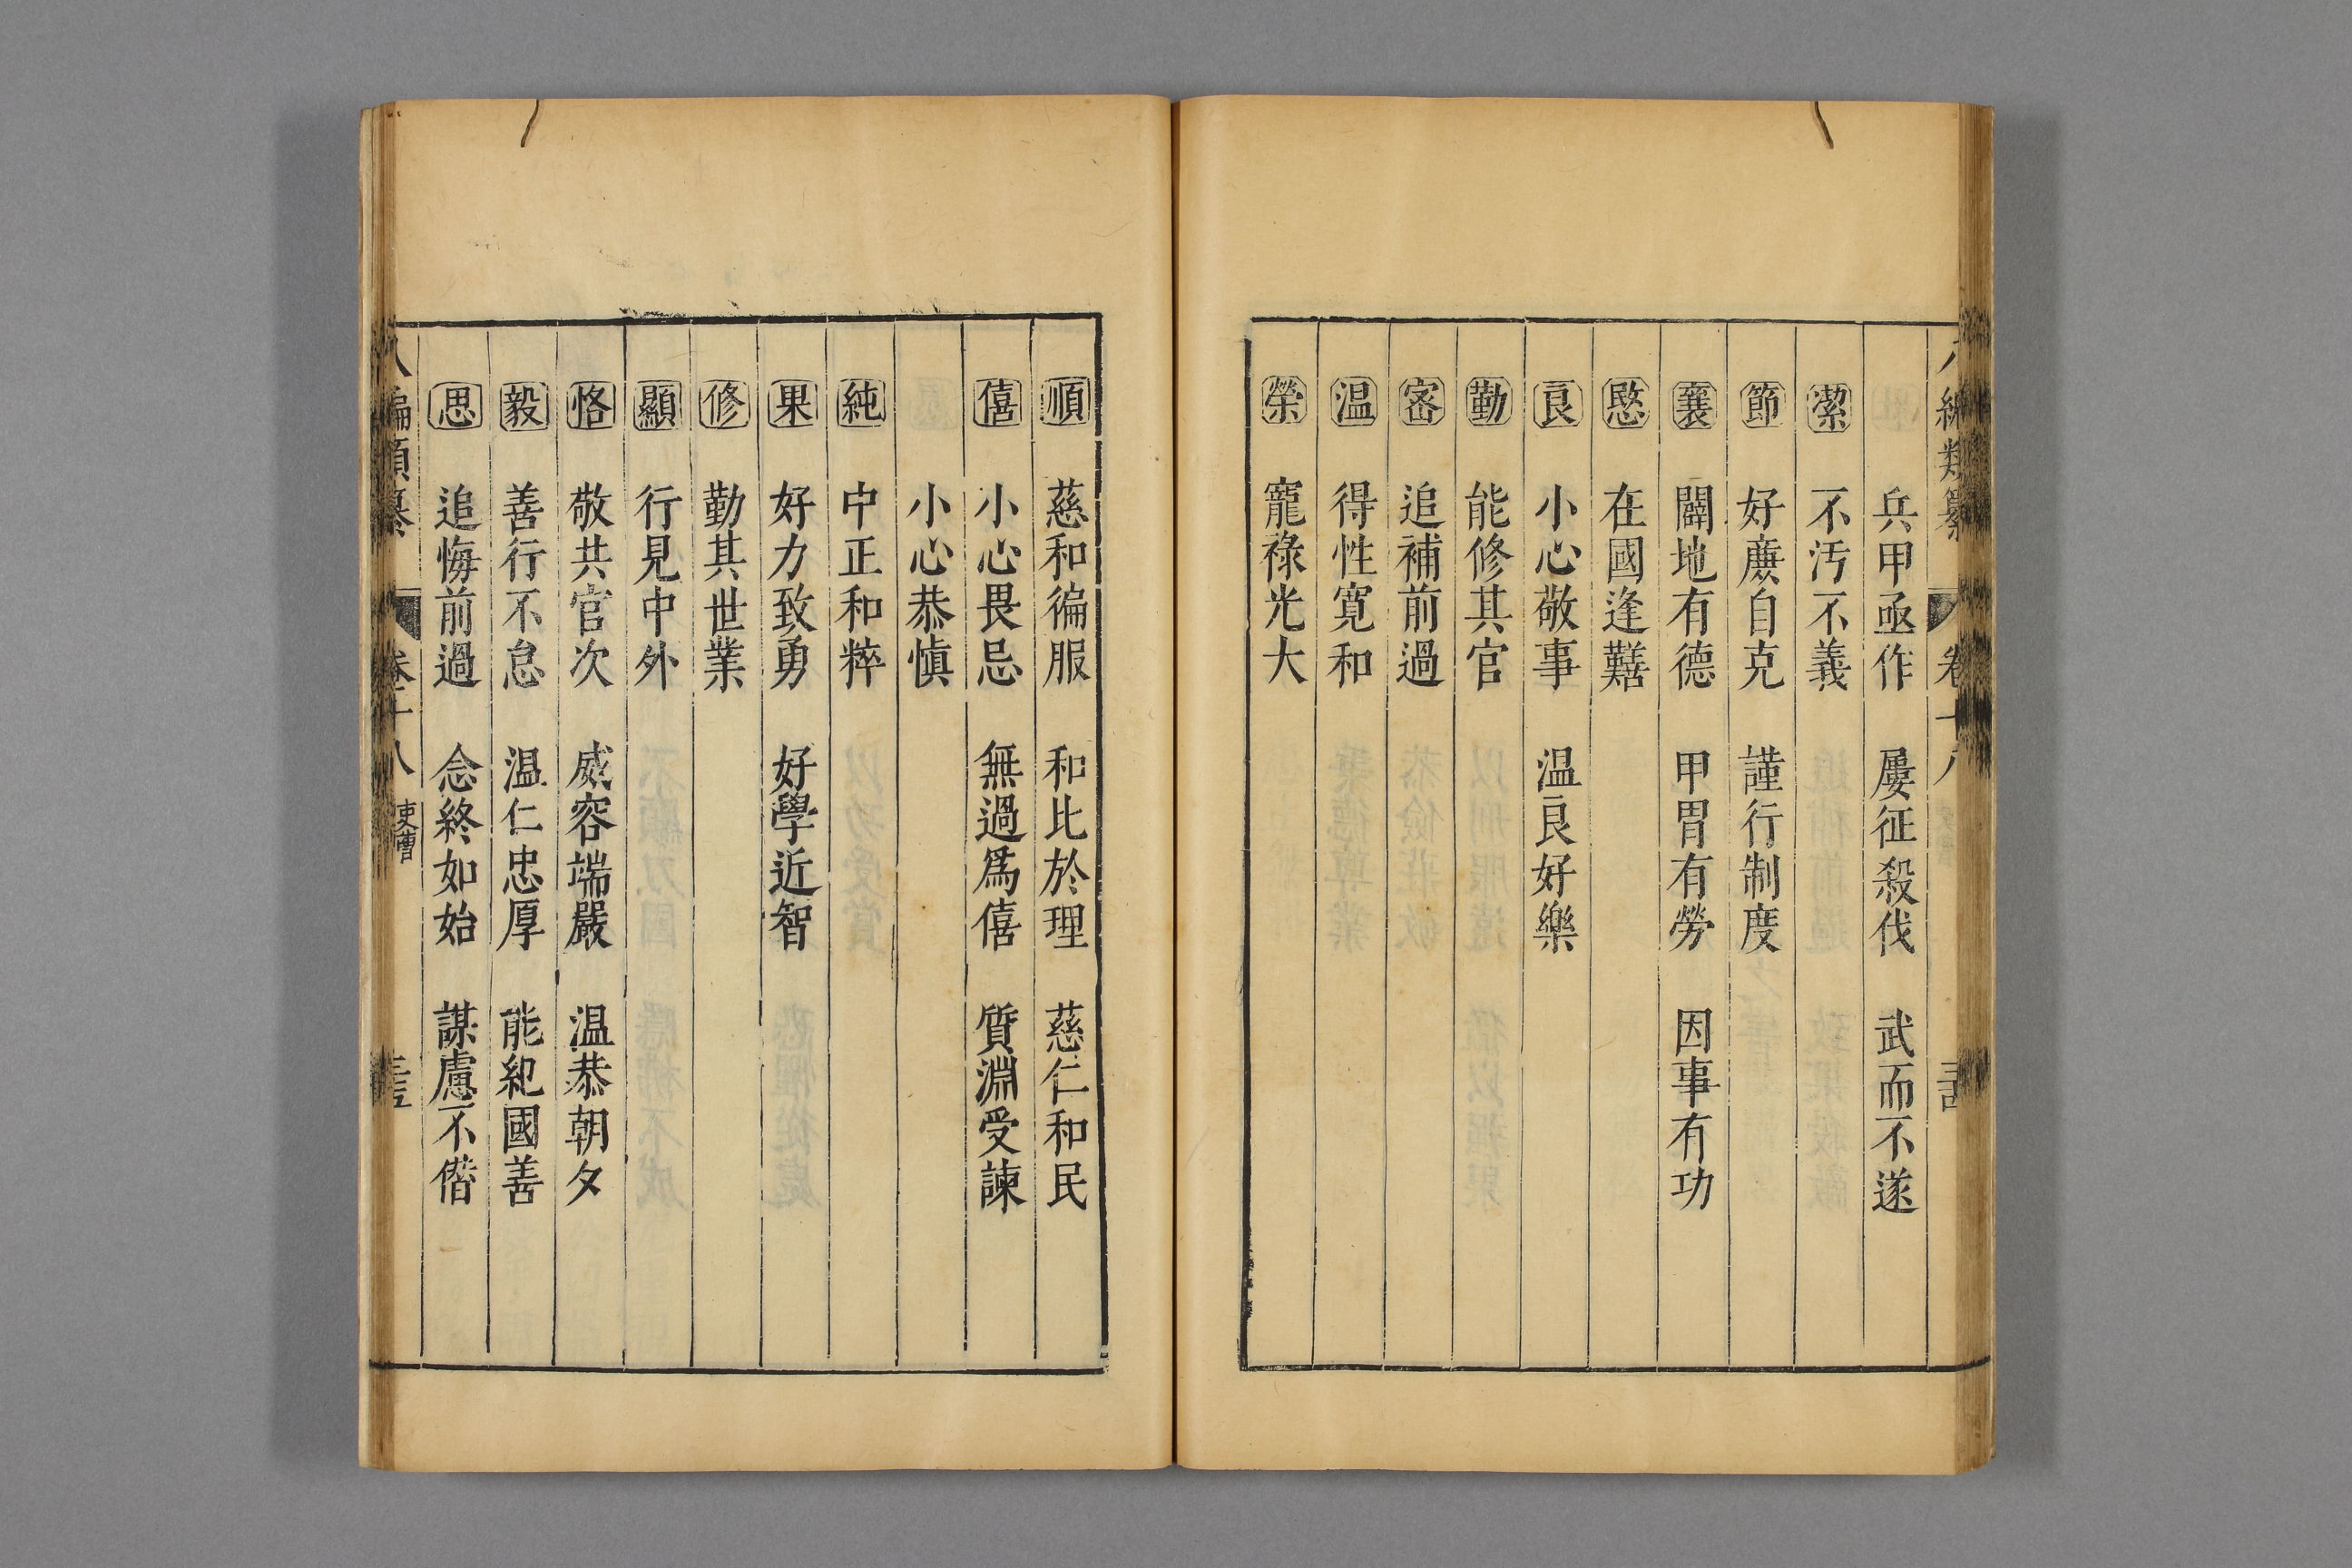 兵甲亟作　屢征殺伐　武而不遂
潔　不汚不義
節　好廉自克　謹行制度
襄　闢地有德　甲冑有勞　因事有功
愍　在國逢囏
良　小心敬事　温良好樂
勤　能修其官
密　追補前過
温　得性寬和
榮　寵祿光大
順　慈和徧服　和比於理　慈仁和民
僖　小心畏忌　無過爲僖　質淵受諫
小心恭愼
純　中正和粹
果　好力致勇　好學近智
修　勤其世業
顯　行見中外
恪　敬共官次　威容端嚴　温恭朝夕
毅　善行不怠　温仁忠厚　能紀國善
思　追悔前過　念終如始　謀慮不僭
八編類纂　卷十八　吏曹